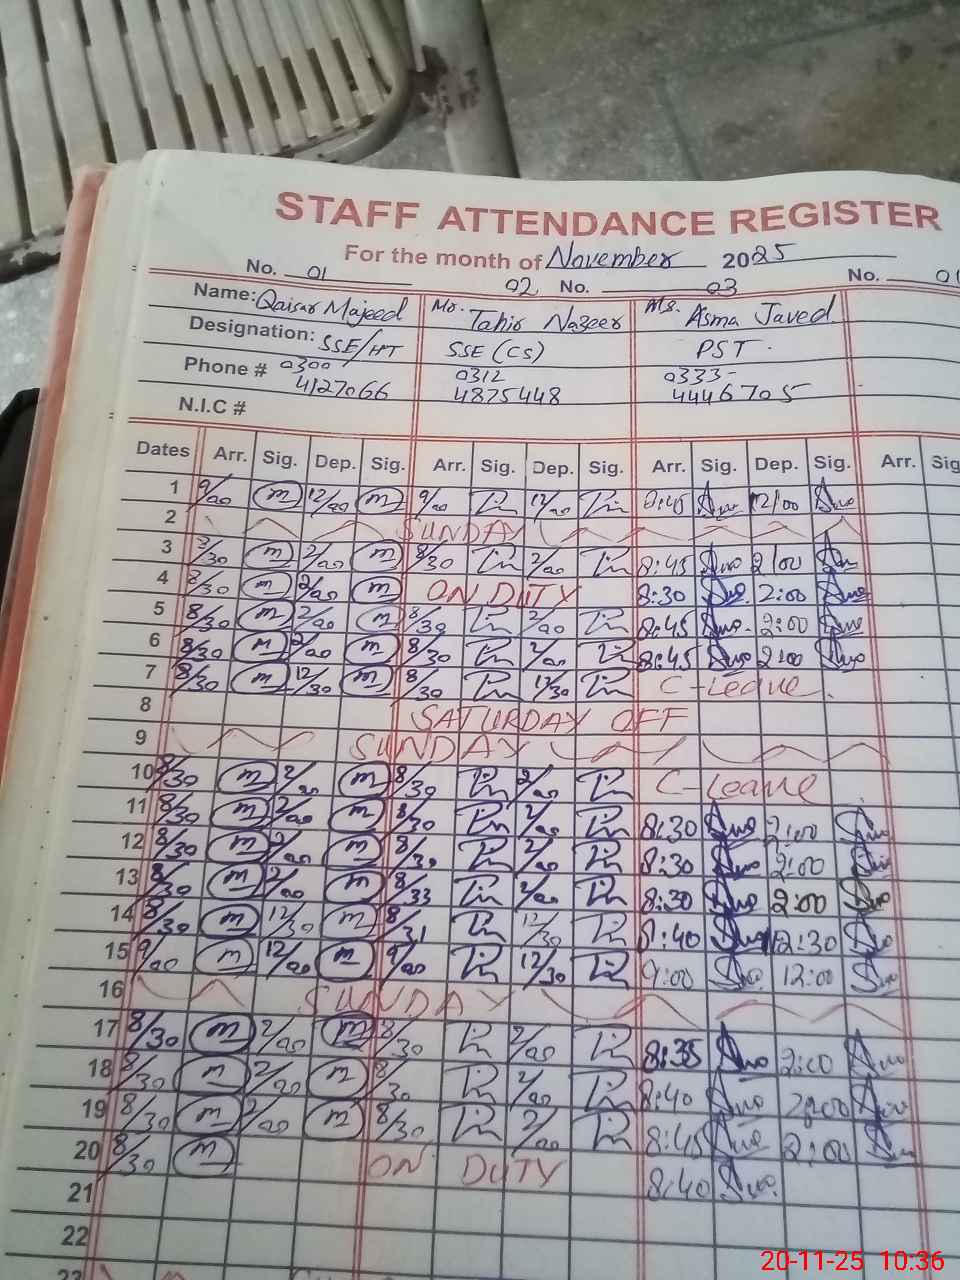 STAFF ATTENDANCE REGISTER
For the month of November 2025
No. 01 02 No. 03 No.
Name: Qaisar Majeed Mr. Tahir Nazeer Ms. Asma Javed
Designation: SSE/HT SSE (CS) PST.
Phone # 0300 0312 0333-
4127066 4875448 4446705
N.I.C #
Dates Arr. Sig. Dep. Sig. Arr. Sig. Dep. Sig. Arr. Sig. Dep. Sig. Arr. Sig
1 9/00 m 12/00 m 9/00 12/00 12:00
2 SUNDAY
3 8/30 m 2/00 m 8/30 2/00 8:45 2:00
4 8/30 m 2/00 m ON DUTY 8:30 2:00
5 8/30 m 2/00 m 8/30 2/00 8:45 2:00
6 8/30 m 2/00 m 8/30 2/00 8:45 2:00
7 8/30 m 12/30 m 8/30 12/30 C-Leave.
8 SATURDAY OFF
9 SUNDAY
10 8/30 m 2/00 m 8/30 2/00 C-Leave
11 8/30 m 2/00 m 8/30 2/00 8:30 2:00
12 8/30 m 2/00 m 8/30 2/00 8:30 2:00
13 8/30 m 2/00 m 8/33 2/00 8:30 2:00
14 8/30 m 12/30 m 8/31 12/30 8:40 12:30
15 9/00 m 12/00 m 9/00 12/30 9:00 12:00
16 SUNDAY
17 8/30 m 2/00 m 8/30 2/00 8:35 2:00
18 8/30 m 2/00 m 8/30 2/00 8:40 2:00
19 8/30 m 2/00 m 8/30 2/00 8:45 2:00
20 8/30 m ON DUTY 8:40
21
22
23
20-11-25 10:36